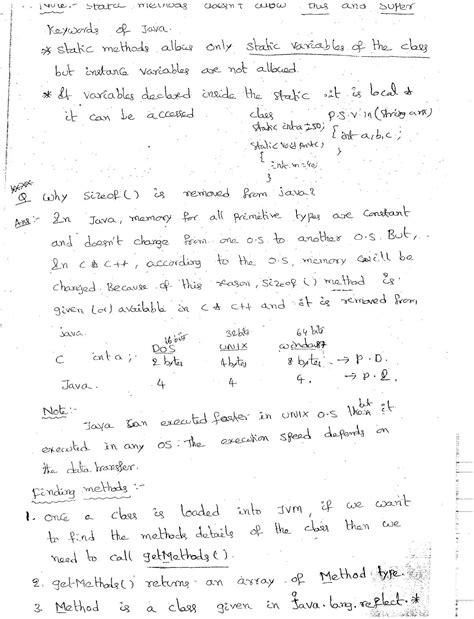 Note:- Static methods doesn't allow this and super
keywords of Java.
* Static methods allows only static variables of the class
but instance variables are not allowed.
* If variables declared inside the static it is local &
it can be accessed
class
static int a=50;
static void fun()
{
int m=40;
}
P.S.V.m(String args)
{ int a,b,c;
Q Why Sizeof() is removed from java?
Ans:- In Java, memory for all primitive types are constant
and doesn't change from one O.S to another O.S. But,
In C & C++, according to the O.S, memory will be
changed. Because of this reason, sizeof() method is
given (or) available in C & C++ and it is removed from
java.
16 bit 32 bit 64 bit
DOS UNIX
C int a; 2 bytes 4 bytes 8 bytes → P.D.
Java. 4 4 4. → P.I.
Note:-
Java can executed faster in UNIX O.S than it
executed in any OS. The execution speed depends on
the data transfer.
Finding methods :-
1. Once a class is loaded into JVM, if we want
to find the methods details of the class then we
need to call getMethods().
2. getMethods() returns an array of Method type.
3. Method is a class given in Java.lang.reflect.*